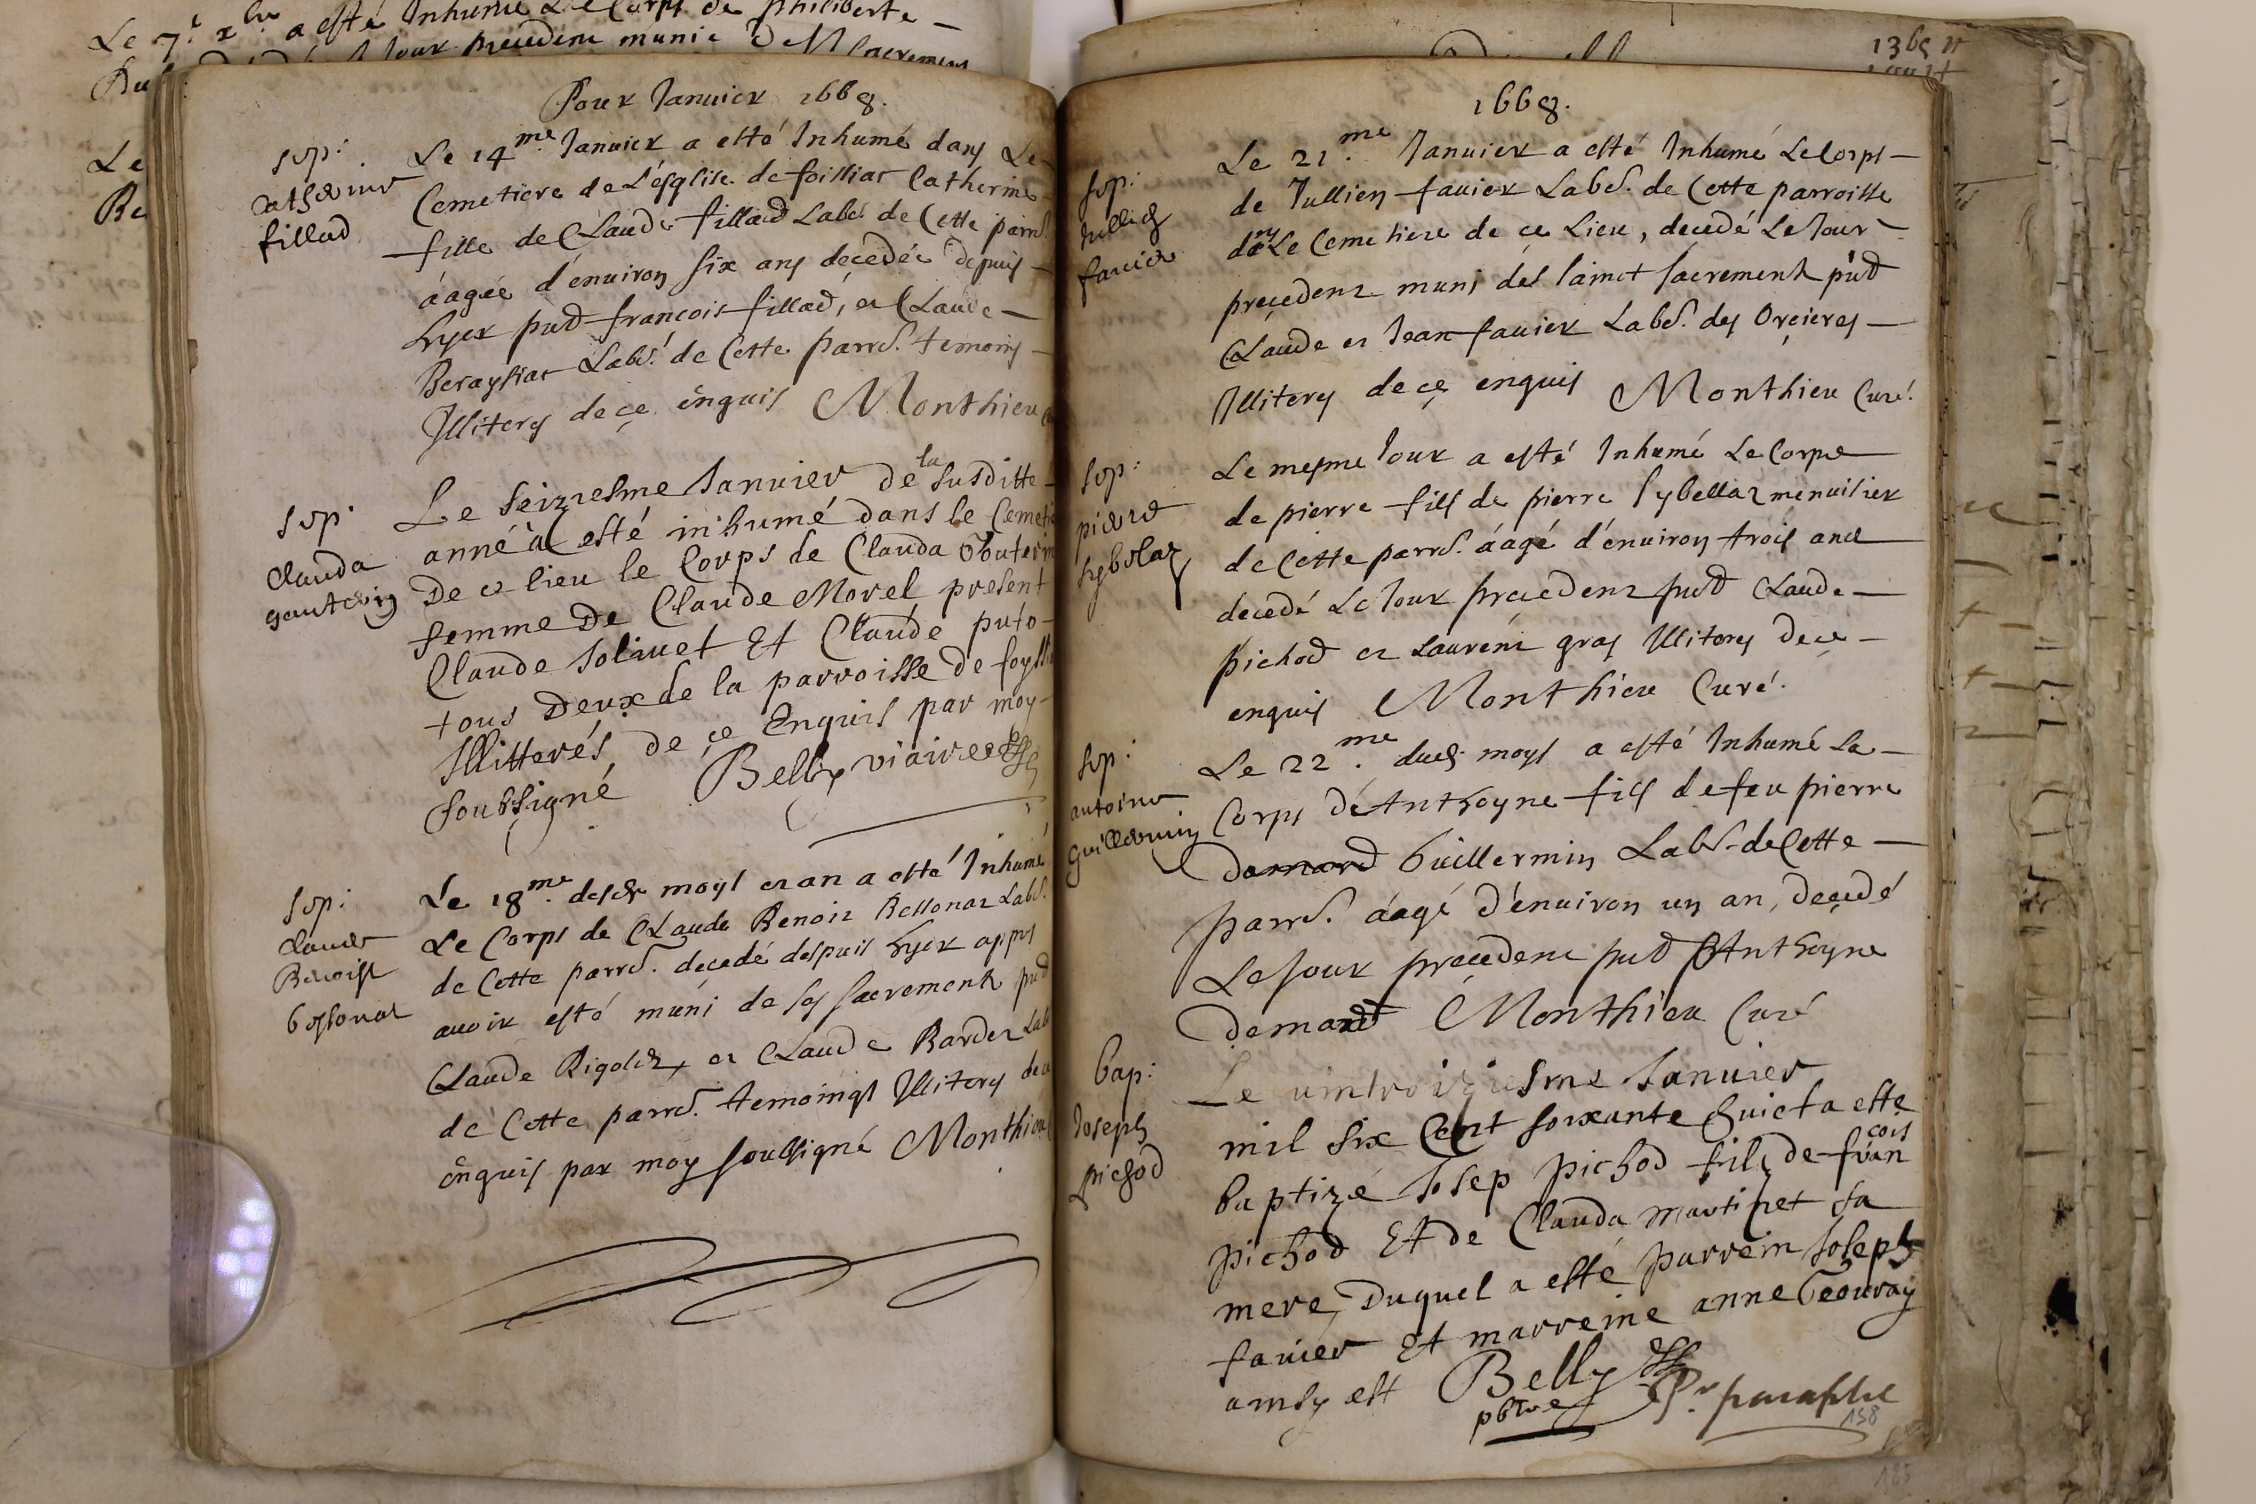 Le 7.e xbre a esté Inhumé Le Corps de philiberte
jour precedent munie des Sacremens
Pour Januier 1668.
sep:
catherine
fillod
Le 14.me Januier a esté Inhumé dans Le
Cemetiere de L'esglise de foissiat Catherine
fille de CLaude fillod Labr. de Cette parr.
áagée d'enuiron six ans decedée depuis
hyer pnts francois fillod, et CLaude
Beraysiat Labrs. de Cette parr. temoins
Illiterés de ce enquis Monthieu
sep:
Clauda
gauterin
Le seiziesme Januier de la susditte
anné a esté inhumé dans le Cemeti
De ce lieu le Corps de Clauda Gouterin
femme De Claude Morel present
Claude Soliuet Et Claude puto
tous Deux de la parroisse de foyssi
Illitterés, de ce Enquis par moy
soubsigné Belly viaire
sep:
Claude
Benoist
bessonat
Le 18.me desdts moys et an a esté Inhumé
Le Corps de CLaude Benoit Bessonat Labr.
de Cette parr. decedé despuis hyer appres
auoir esté muni de ses sacrements pnts
CLaude Rigolet, et CLaude Bardet Lab
de Cette parr. temoings Illiterés de ce
enquis par moy soussigné Monthieu
1668.
sep:
Jullien
fauier
Le 21.me Januier a esté Inhumé Le Corps
de Jullien fauier Labr. de Cette parroisse
dans Le Cemetiere de ce Lieu, decedé Le Jour
precedent muni des sainct sacrements pnts
CLaude et Jean fauier Labrs. des Orcieres
Illiterés de ce enquis Monthieu Curé.
sep:
pierre
sybelaz
Le mesme Jour a esté Inhumé Le Corps
de pierre fils de pierre sybellaz menuisier
de Cette parr. áagé d'enuiron trois ans
decedé Le Jour precedent pnts CLaude
pichod et Laurent gras Illiterés de ce
enquis Monthieu Curé.
sep:
antoine
guillermin
Le 22.me dud. moys a esté Inhumé Le
Corps d'Anthoyne fils de feu pierre
Guillermin Labr. de Cette
parr. áagé d'enuiron un an, decedé
Le Jour precedent pnts Anthoyne
demard Monthieu Curé
bap:
Joseph
pichod
Le vintroiziesme Januier
mil six Cent soixante huict a esté
baptizé Josep pichod fils de francois
pichod Et de Clauda martinet sa
mere, Duquel a esté parrein Joseph
fauier Et marreine anne Geouray
ainsy est Belly
pbtre
Pr. paraphe
158